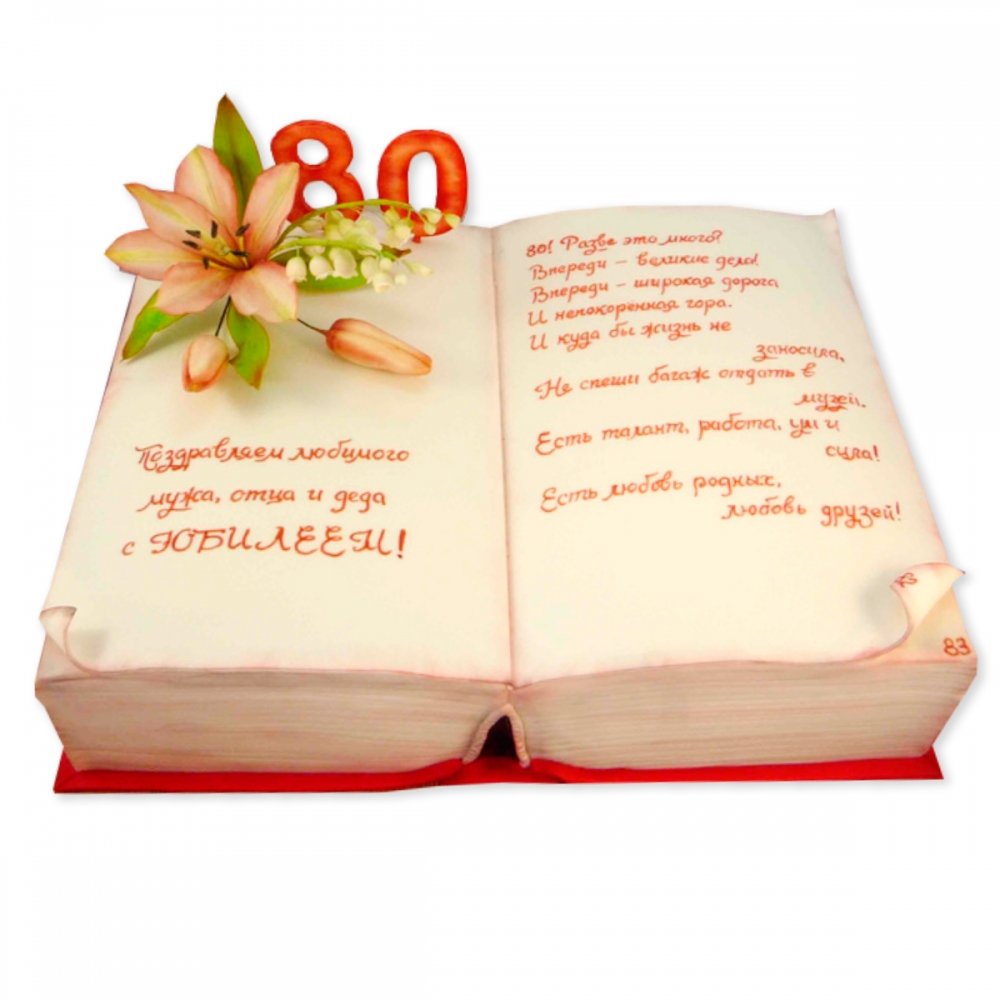 80
Поздравляем любимого
мужа, отца и деда
с ЮБИЛЕЕМ!
80! Разве это много?
Впереди – великие дела!
Впереди – широкая дорога
И непокорённая гора.
И куда бы жизнь не
заносила,
Не спеши багаж отдать в
музей.
Есть талант, работа, ум и
сила!
Есть любовь родных,
любовь друзей!
83